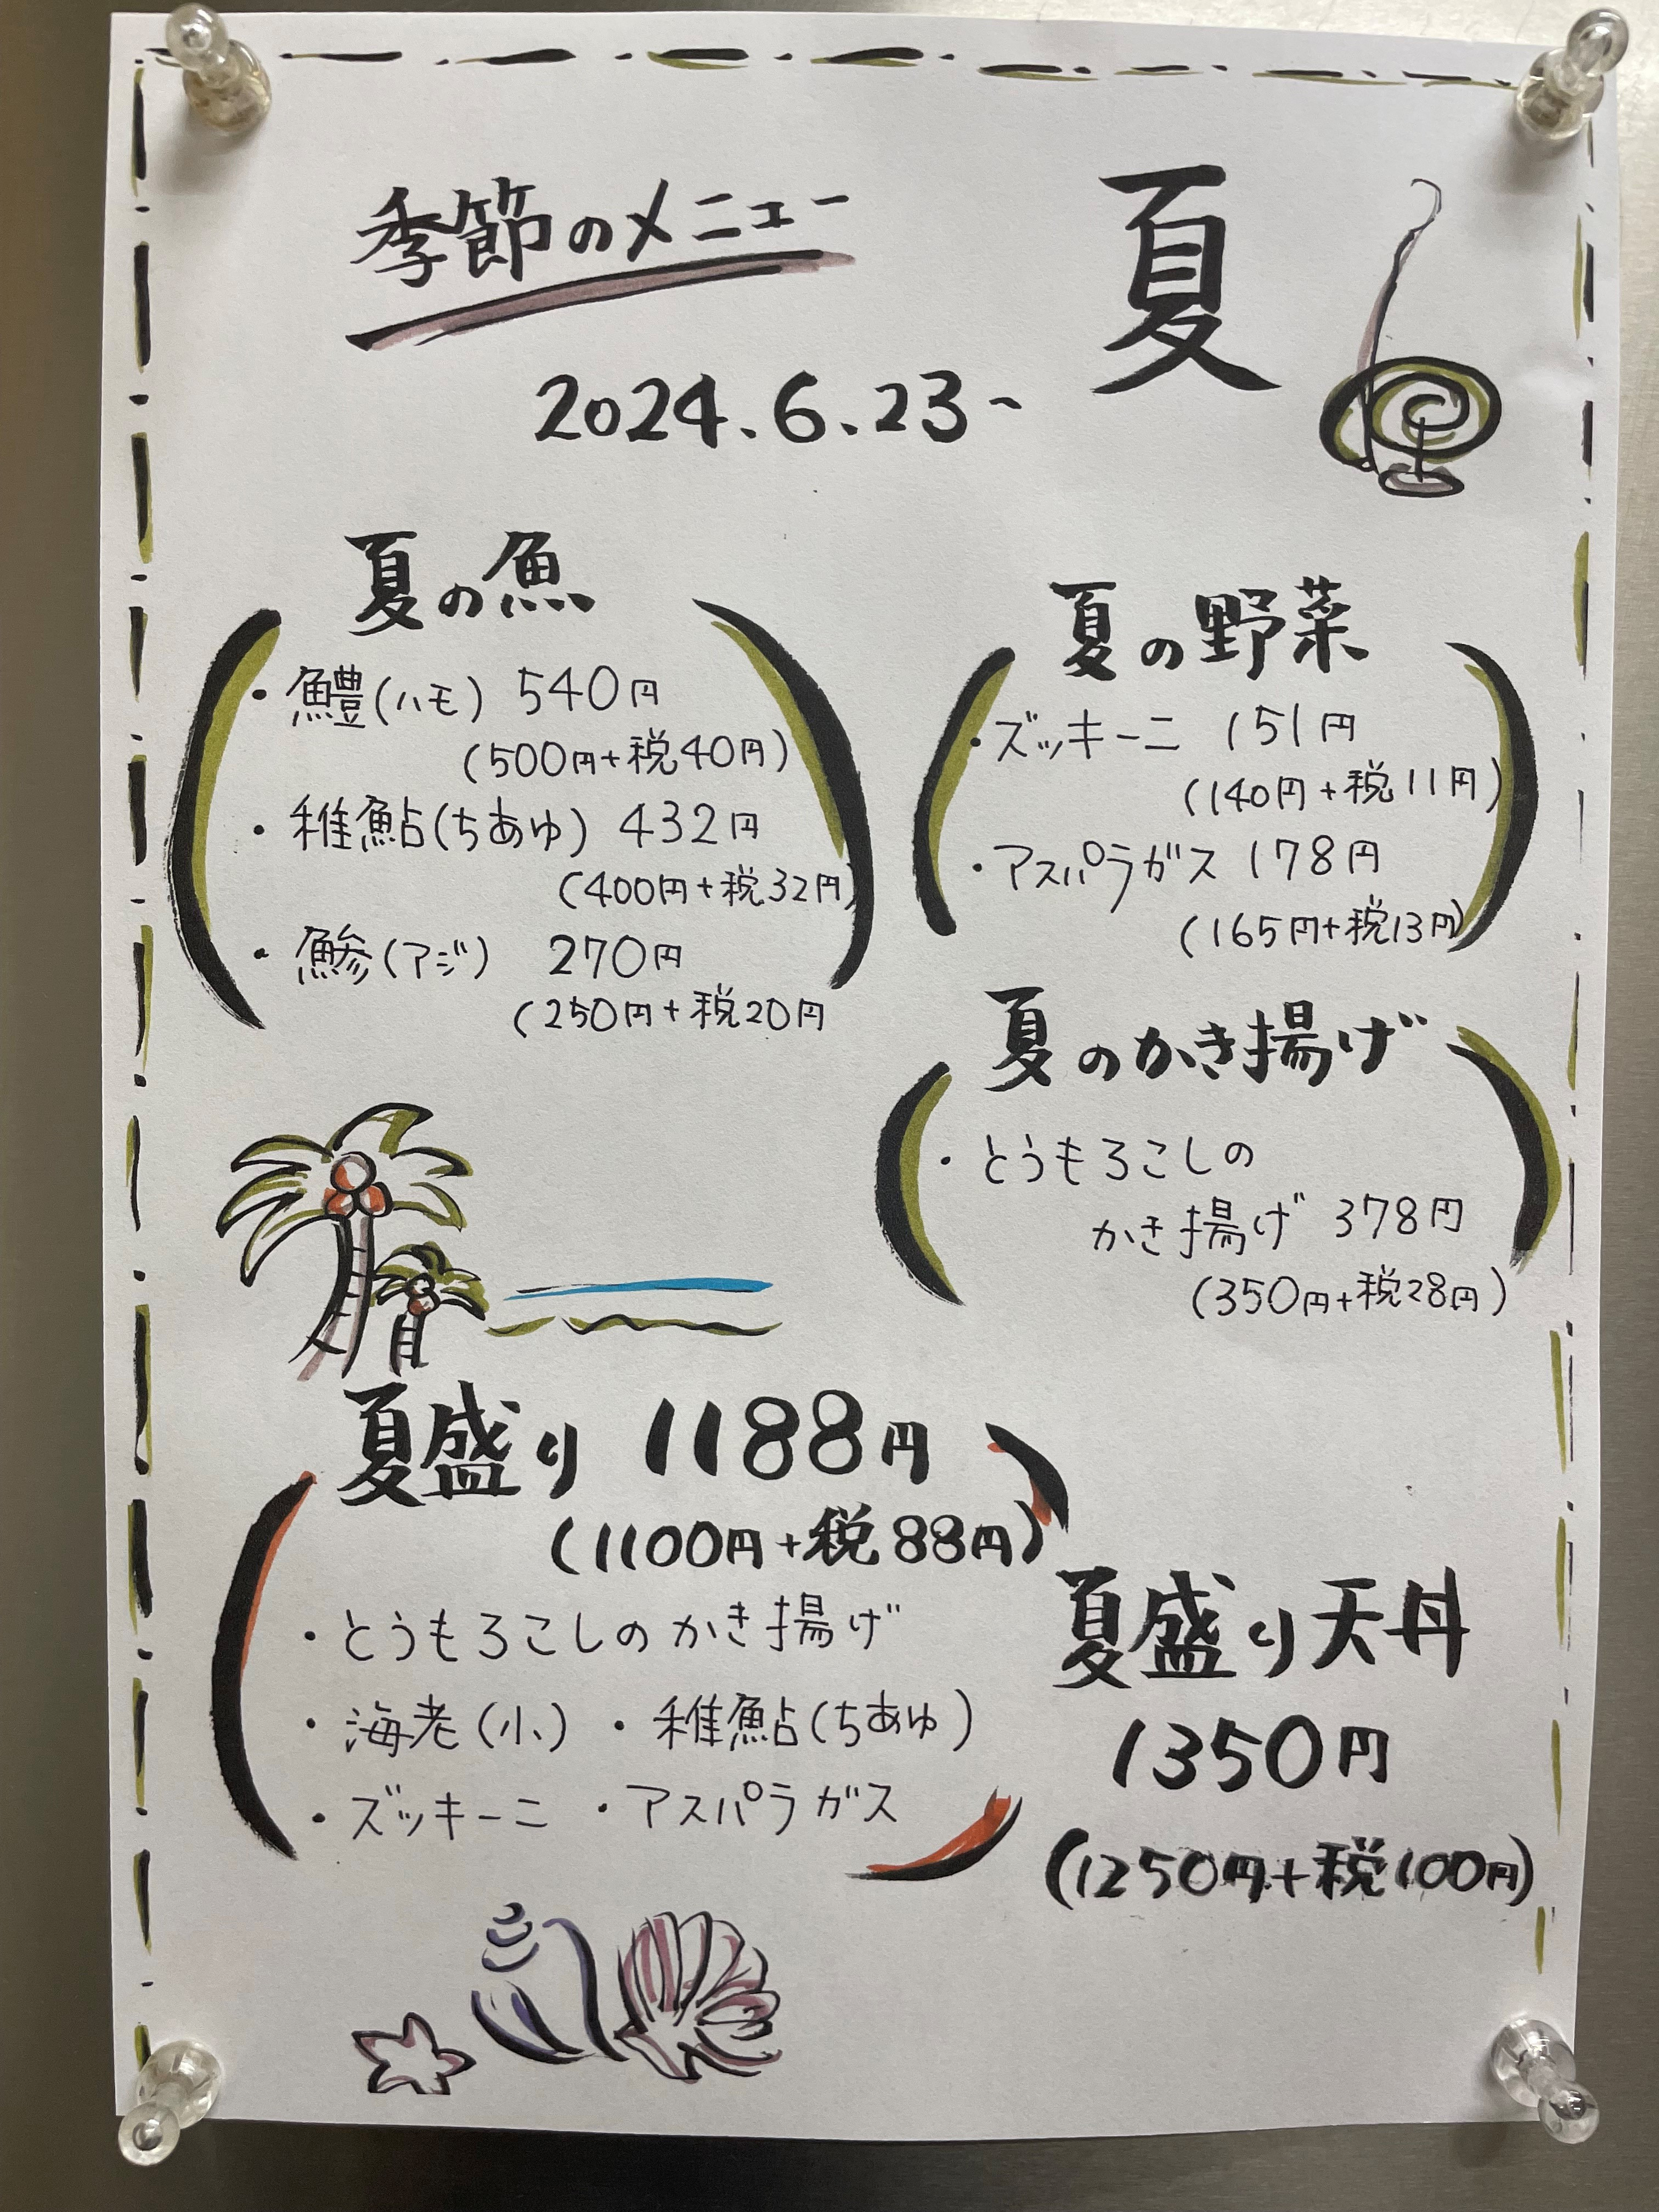 季節のメニュー
夏
2024.6.23~
夏の魚
・鱧(ハモ) 540円
(500円+税40円)
・稚鮎(ちあゆ) 432円
(400円+税32円)
・鯵(アジ) 270円
(250円+税20円
夏の野菜
・ズッキーニ 151円
(140円+税11円)
・アスパラガス 178円
(165円+税13円)
夏のかき揚げ
・とうもろこしの
かき揚げ 378円
(350円+税28円)
夏盛り 1188円
(1100円+税88円)
・とうもろこしのかき揚げ
・海老(小) ・稚鮎(ちあゆ)
・ズッキーニ ・アスパラガス
夏盛り天丼
1350円
(1250円+税100円)